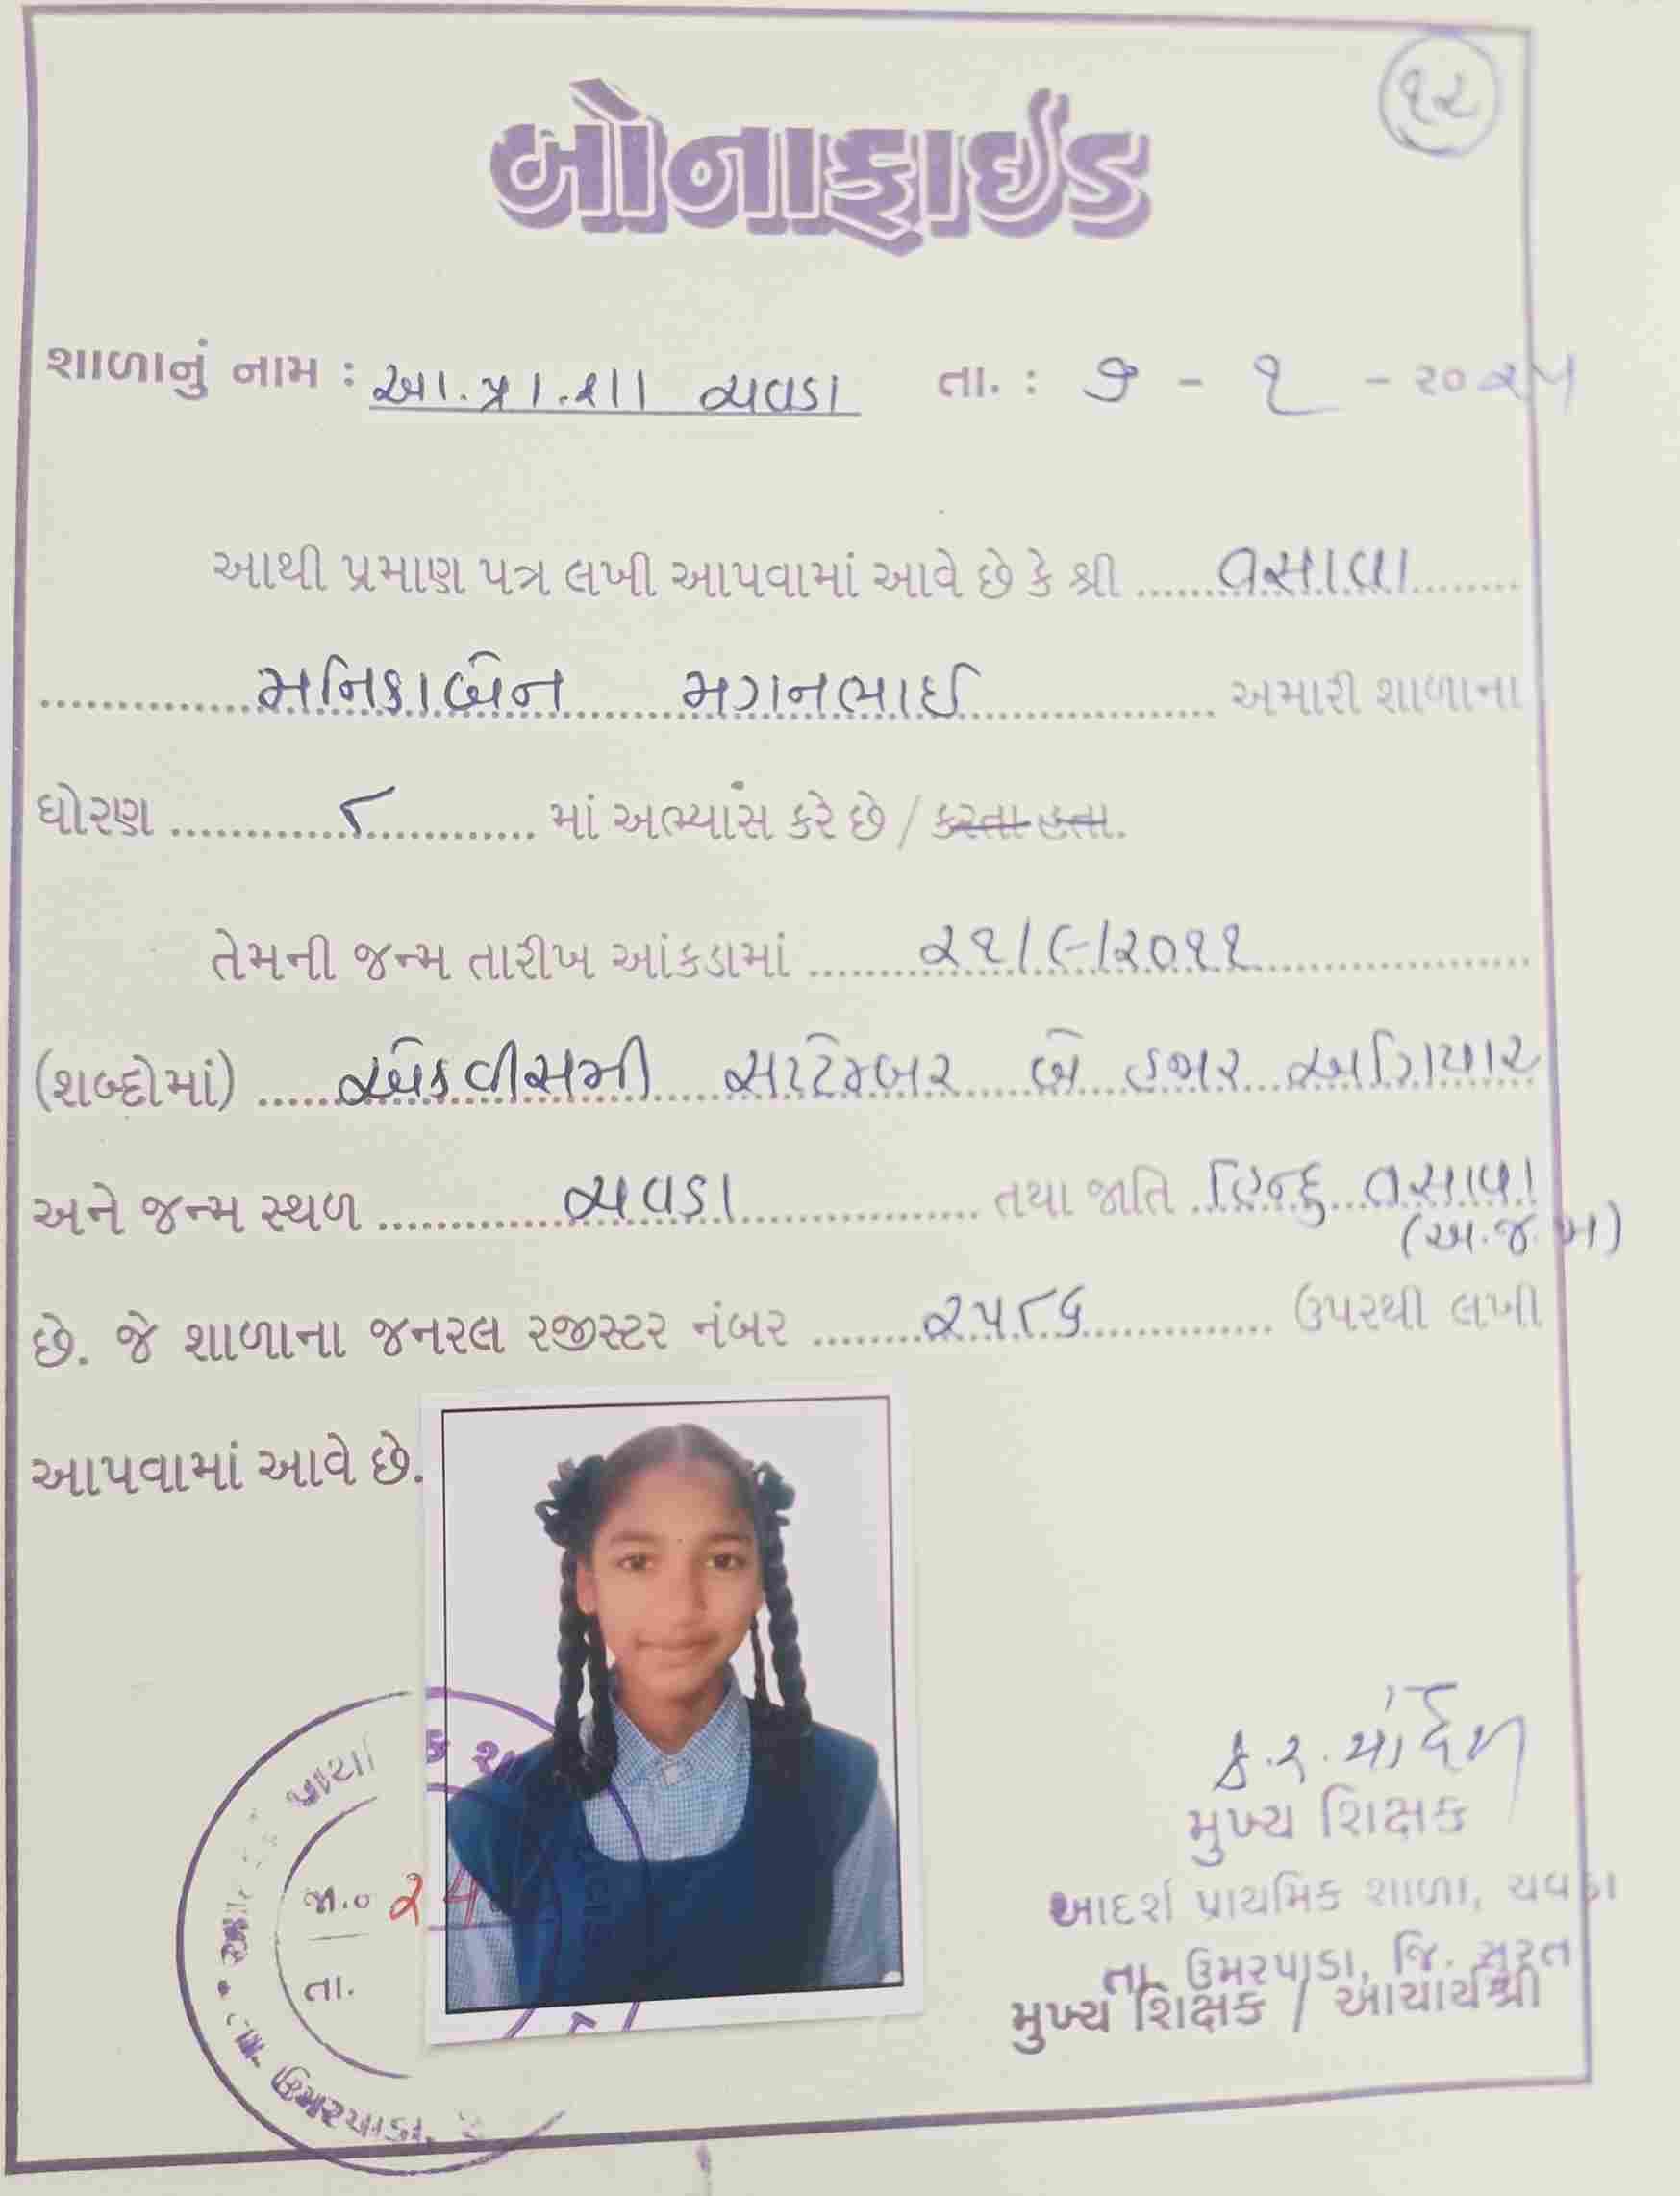 ૧૨
બોનાફાઈડ
શાળાનું નામ : આ.પ્રા.શા ચવડા તા. : ૭ - ૧ - ૨૦૨૫
આથી પ્રમાણ પત્ર લખી આપવામાં આવે છે કે શ્રી ......વસાવા........
..............મનિકાબેન મગનભાઈ................ અમારી શાળાના
ધોરણ ............૮............ માં અભ્યાસ કરે છે / કરતા હતા.
તેમની જન્મ તારીખ આંકડામાં ........૨૧/૯/૨૦૧૧....................
(શબ્દોમાં) ......એકવીસમી સપ્ટેમ્બર બે હજાર અગિયાર
અને જન્મ સ્થળ .............ચવડા................. તથા જાતિ ..હિન્દુ વસાવા
(અ.જ.જા)
છે. જે શાળાના જનરલ રજીસ્ટર નંબર ........૨૫૮૬.............. ઉપરથી લખી
આપવામાં આવે છે.
જા.૦ ૨૫
તા.
તા. ઉમરપાડા.
મુખ્ય શિક્ષક
આદર્શ પ્રાથમિક શાળા, ચવડા
તા. ઉમરપાડા, જિ. સુરત
મુખ્ય શિક્ષક / આચાર્યશ્રી